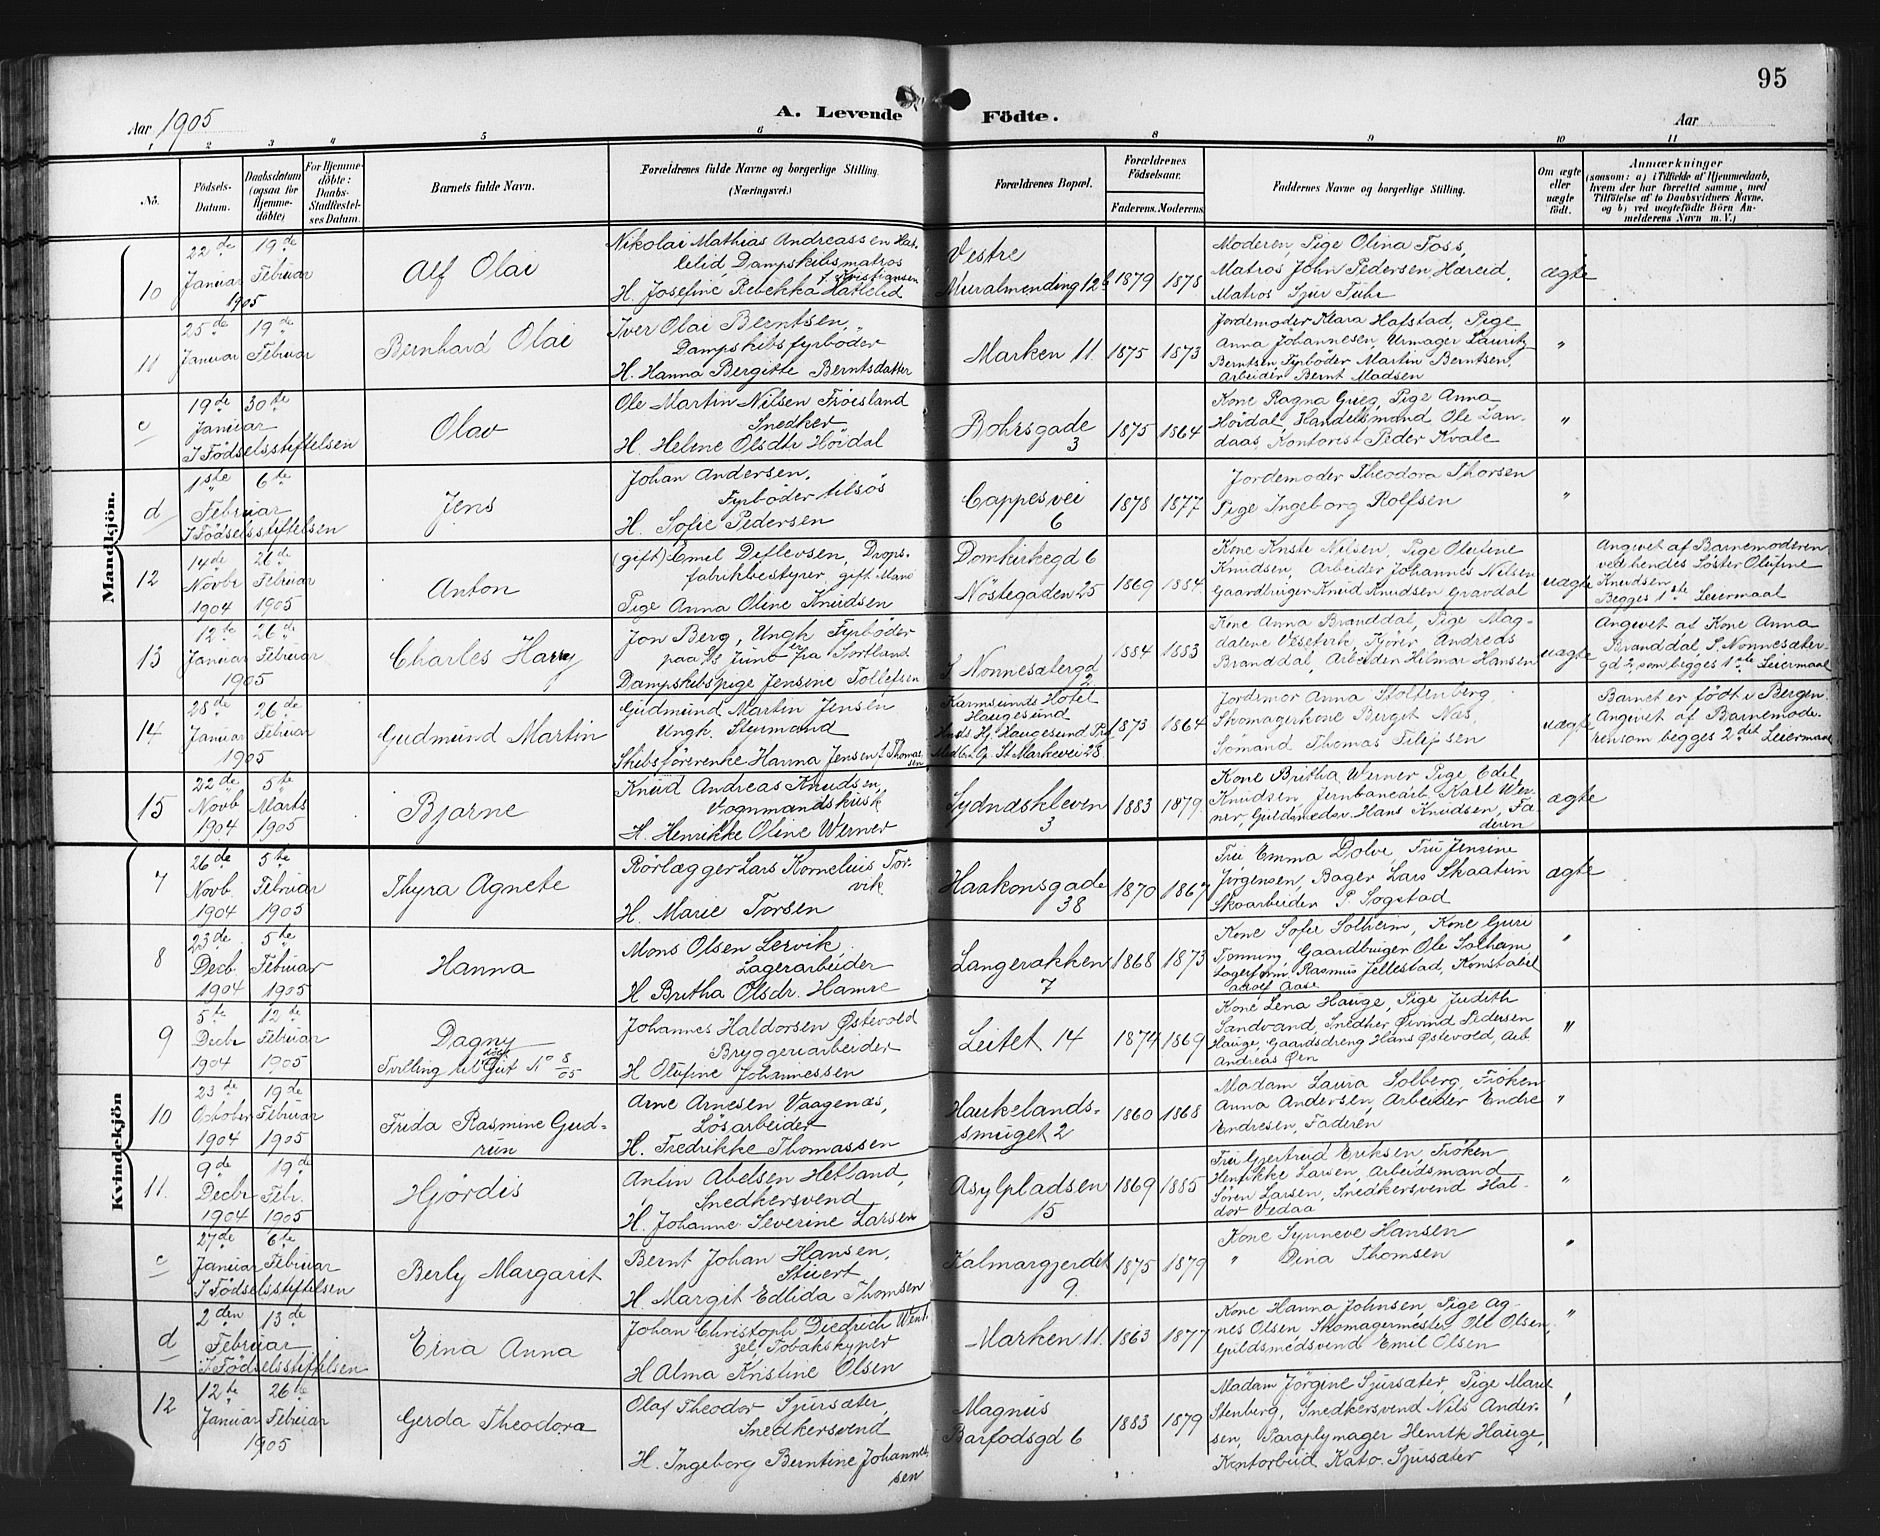 95
Aar 1905
A. Levende Födte.
Aar
1 2 3 4 5 6 8 9 10 11
No.
Födsels-Datum.
Daabsdatum (ogsaa for Hjemmedöbte)
For Hjemmedöbte: Daabs-Stadfestelses Datum.
Barnets fulde Navn.
Forældrenes fulde Navne og borgerlige Stilling. (Næringsvei.)
Forældrenes Bopæl.
Forældrenes Födselsaar.
Faderens. Moderens
Faddernes Navne og borgerlige Stilling.
Om ægte eller uægte födt.
Anmærkninger
(saasom: a) i Tilfælde af Hjemmedaab, hvem der har forrettet samme, med Tilföielse af to Daabsvidners Navne, og b) ved uægtefödte Börn Anmelderens Navn m. V.)
Mandkjön.
10
22de Januar 19de Februar 1905
Alf Olai
Nikolai Mathias Andreassen Hatlelid Dampskibsmatros
H. Josefine Rebekka f. Kristiansen Hatlelid
Vestre Muralmending 12b
1879 1878
Moderen, Pige Olina Foss,
Matros John Pedersen Hæreid,
Matros Sjur Fuhr
ægte
11
25de Januar 19de Februar
Bernhard Olai
Iver Olai Berntsen,
Dampskibsfyrböder
H. Hanna Bergitte Berntsdatter
Marken 11.
1875 1873
Jordemoder Klara Hafstad, Pige
Anna Johannesen, Urmager Lauritz
Berntsen, Fyrböder Martin Berntsen,
Arbeider Bernt Madsen
"
c
19de Januar 30te
I Födselsstiftelsen
Olav
Ole Martin Nilsen Fröisland
Snedker
H. Helene Olsdtr Höidal
Bohrsgade 3
1875 1864
Kone Ragna Grieg, Pige Anna
Höidal, Handelsmand Ole Landaas, Kontorist Peder Kvale
"
d
1ste Februar 6te
I Födselsstiftelsen
Jens
Johan Andersen,
Fyrböder tilsös
H. Sofie Pedersen
Cappesvei 6
1878 1877
Jordemoder Theodora Thorsen
Pige Ingeborg Rolfsen
"
12
14de Novbr 1904 26de Februar 1905
Anton
(gift) Emil Ditlevsen, Dropsfabrikbestyrer, gift Mand
Pige Anna Oline Knudsen
Domkirkegd 6
Nöstegaden 25
1869 1884
Kone Knste Nilsen, Pige Olufine
Knudsen, Arbeider Johannes Nilsen
Gaardbruger Knud Knudsen Gravdal
uægte
Angivet af Barnemoderen
ved hendes Söster Olufine
Knudsen
Begges 1ste Leiermaal
13
12te Januar 26de Februar 1905
Charles Harry
Jon Berg, Ungk. Fyrböder
paa S/s Juno fra Sortland
Dampskibspige Jensine Tollefsen
S. Nonnesætergd 2
1884 1883
Kone Anna Branddal, Pige Magdalene Vesetvik, Kjörer Andreas
Branddal, Arbeider Hilmar Hansen
uægte
Angivet af Kone Anna
Branddal, S. Nonnesætergd 2, som begges 1ste Leiermaal
14
28de Januar 26de Februar 1905
Gudmund Martin
Gudmund Martin Jensen
Ungk. Styrmand
Skibsförerenke Hanna Jensen f. Thomassen
Karmsunds Hotel
Haugesund
St Markevei 28
1873 1864
Jordemor Anna Stoltenberg.
Skomagerkone Berget Næs,
Sömand Thomas Filipsen
uægte
Barnet er född i Bergen.
Angivet af Barnemoderen som begges 2det Leiermaal
15
22de Novb 1904 5te Marts 1905
Bjarne
Knud Andreas Knudsen,
Vognmandskusk
H. Henrikke Oline Werner
Sydnæskleven 3
1883 1879
Kone Britha Werner, Pige Edel
Knudsen, Jernbanearb. Karl Werner, Guldsmedsv. Hans Knudsen, Faderen
ægte
Kvindekjön
7
26de Novb. 1904 5te Februar 1905
Thyra Agnete
Rörlægger Lars Kornelius Torvik
H. Marie Torsen
Haakonsgade 38
1870 1867
Fru Emma Dolve, Fru Jensine
Jörgensen, Bager Lars Skaatun
Skoarbeider P. Sogstad
ægte
8
23de Decb. 1904 5te Februar 1905
Hanna
Mons Olsen Lervik
Lagerarbeider
H. Britha Olsdr. Hamre
Langerækken 7
1868 1873
Kone Sofie Solheim, Kone Guri
Tjönning, Gaardbruger Ole Solheim
Lagerform. Rasmus Jellestad, Konstabel
Adolf Aase
"
9
5te Decbr 1904 12te Februar 1905
Dagny
Tvilling til död Gut No 8/05
Johannes Haldorsen Østevold
Bryggeriarbeider
H. Olufine Johannessen
Leitet 14
1874 1869
Kone Lena Hauge, Pige Judith
Sandvand, Snedker Øivind Pedersen
Hauge, Gaardsdreng Hans Østevold, Arb.
Andreas Øen
"
10
23de October 1904 19de Februar 1905
Frida Rasmine Gudrun
Arne Arnesen Vaagenæs,
Lösarbeider
H. Fredrikke Thomassen
Haukelandssmuget 2
1860 1868
Madam Laura Solberg, Fröken
Anna Andersen, Arbeider Endre
Endresen, Faderen
"
11.
9de Decbr 1904 19de Febr. 1905
Hjördis
Antin Abelsen Hetland,
Snedkersvend
H. Johanne Severine Larsen
Asylpladsen 15
1869 1885
Fru Gjertrud Eriksen, Fröken
Henrikke Larsen, Arbeidsmand
Sören Larsen, Snedkersvend Haldor Vedaa
"
c
27de Januar 6te Februar
I Födselsstiftelsen
Berly Margarit
Bernt Johan Hansen,
Stuert
H. Margit Edlida Thomsen
Kalmargjerdet 9.
1875 1879
Kone Synneve Hansen
" Dina Thomsen
"
d
2den Februar 13de
I Födselsstiftelsen
Erna Anna
Johan Christoph Diedrich Wentzel, Tobaksktyper
H Alma Kristine Olsen
Marken 11.
1863 1877
Kone Hanna Johnsen, Pige Agnes Olsen, Skomagermester Ole Olsen,
Guldsmedsvend Emil Olsen
"
12
12te Januar 26de Februar 1905
Gerda Theodora
Olaf Theodor Sjursæter,
Snedkersvend
H. Ingeborg Berntine Johannessen
Magnus Barfodsgd 6
1883 1879
Madam Jörgine Sjursæter, Pige Marit
Stenberg, Snedkersvend Nils Andersen, Paraplymager Henrik Hauge,
Kontorbud Kato Sjursæter
"